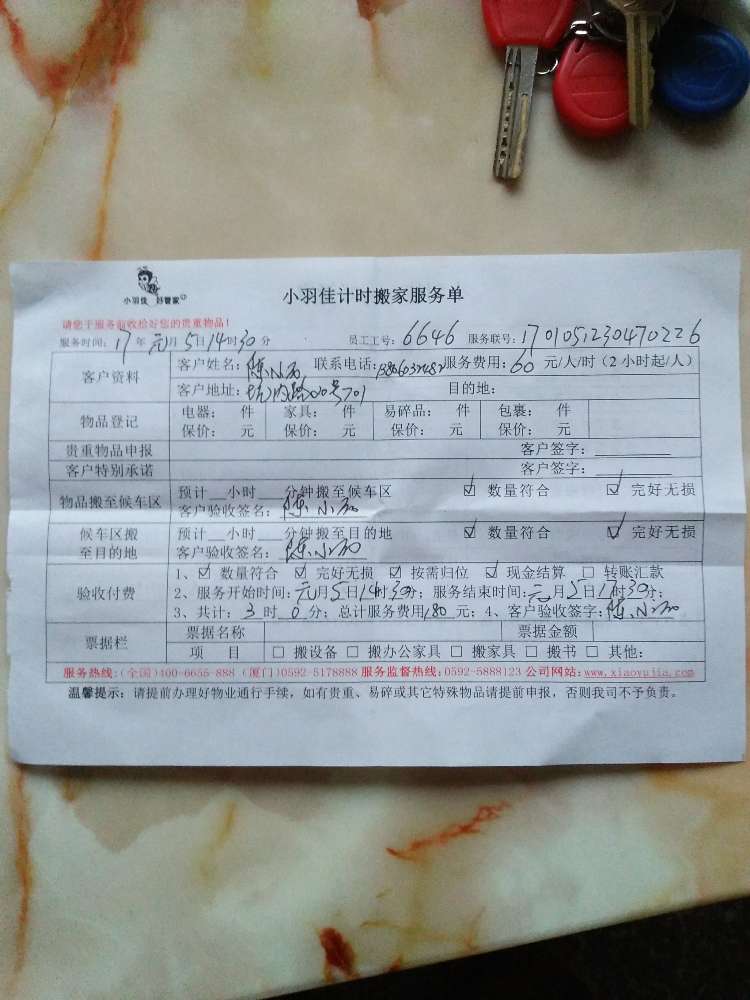 小羽佳 好管家
小羽佳计时搬家服务单
请您于服务前收检好您的贵重物品!
服务时间: 17年 元月 5日 14时 30分 员工工号: 6646 服务联号: 1701051230470226
客户资料
客户姓名: 陈小石 联系电话: 服务费用: 60 元/人/时 (2小时起/人)
客户地址: 目的地:
物品登记
电器: 件 家具: 件 易碎品: 件 包裹: 件
保价: 元 保价: 元 保价: 元 保价: 元
贵重物品申报 客户签字:
客户特别承诺 客户签字:
物品搬至候车区
预计__小时___分钟搬至候车区 ☑ 数量符合 ☑ 完好无损
客户验收签名: 陈小石
候车区搬至目的地
预计__小时___分钟搬至目的地 ☑ 数量符合 ☑ 完好无损
客户验收签名: 陈小石
验收付费
1、☑ 数量符合 ☑ 完好无损 ☑ 按需归位 ☑ 现金结算 □ 转账汇款
2、服务开始时间: 元月5日14时30分; 服务结束时间: 元月5日17时30分;
3、共计: 3 时 0 分; 总计服务费用 180 元; 4、客户验收签字: 陈小石
票据栏
票据名称 票据金额
项 目 □ 搬设备 □ 搬办公家具 □ 搬家具 □ 搬书 □ 其他:
服务热线:(全国)400-6655-888 (厦门)0592-5178888 服务监督热线:0592-5888123 公司网站:www.xiaoyujia.com
温馨提示: 请提前办理好物业通行手续, 如有贵重、易碎或其它特殊物品请提前申报, 否则我司不予负责。